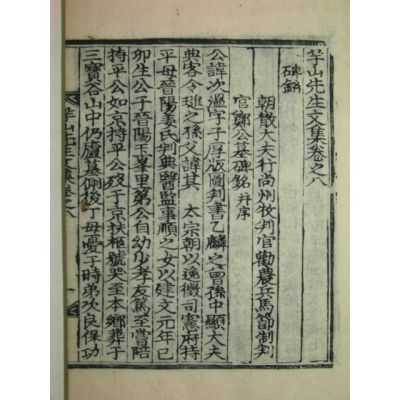 芋山先生文集卷之八
碑銘
朝散大夫行尚州牧判官勸農兵馬節制判
官鄭公墓碑銘 并序
公諱次溫字子厚版圖判書乙麟之曾孫中顯大夫
典客令璡之孫父諱其 太宗朝以逸徵司憲府持
平母晉陽姜氏判典醫監事順之女以建文元年己
卯生公于晉陽玉峯里第公自幼少孝友篤至嘗陪
持平公如京持平公歿于京扶柩號哭至本鄉葬于
三寶谷山中仍廬墓側後丁母憂于時弟次良保功
芋山先生文集卷之八 一